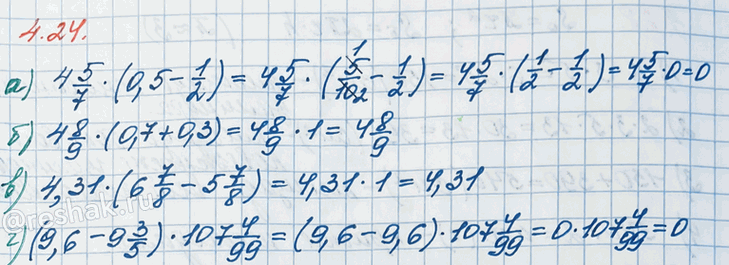 4.24.
а) 4 5/7 · (0,5 − 1/2) = 4 5/7 · (5/10 1/2 − 1/2) = 4 5/7 · (1/2 − 1/2) = 4 5/7 · 0 = 0
б) 4 8/9 · (0,7 + 0,3) = 4 8/9 · 1 = 4 8/9
в) 4,31 · (6 7/8 − 5 7/8) = 4,31 · 1 = 4,31
@reshak.ru
г) (9,6 − 9 3/5) · 107 4/99 = (9,6 − 9,6) · 107 4/99 = 0 · 107 4/99 = 0